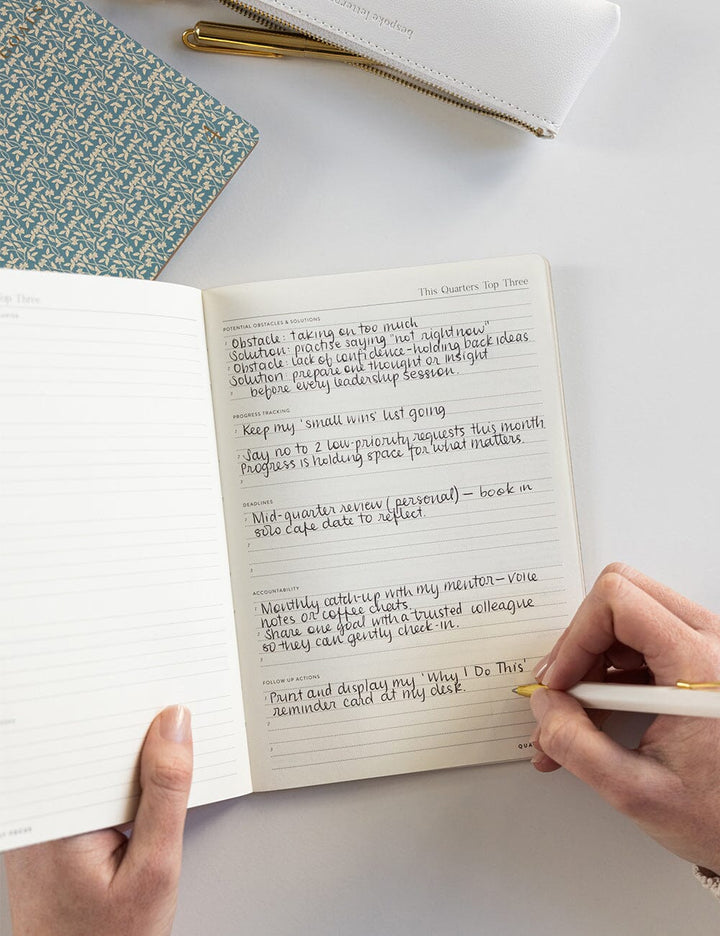 bespoke letter
op Three
This Quarters Top Three
POTENTIAL OBSTACLES & SOLUTIONS
1 Obstacle: taking on too much
Solution: practise saying "not right now"
2 Obstacle: lack of confidence - holding back ideas
Solution: prepare one thought or insight
3 before every leadership session.
PROGRESS TRACKING
1 Keep my 'small wins' list going
2 Say no to 2 low-priority requests this month
Progress is holding space for what matters.
3
DEADLINES
1 Mid-quarter review (personal) — book in
solo cafe date to reflect.
2
3
ACCOUNTABILITY
1 Monthly catch-up with my mentor - voice
notes or coffee chats.
2 Share one goal with a trusted colleague
so they can gently check-in.
3
FOLLOW UP ACTIONS
1 Print and display my 'Why I Do This'
reminder card at my desk.
2
3
QUA